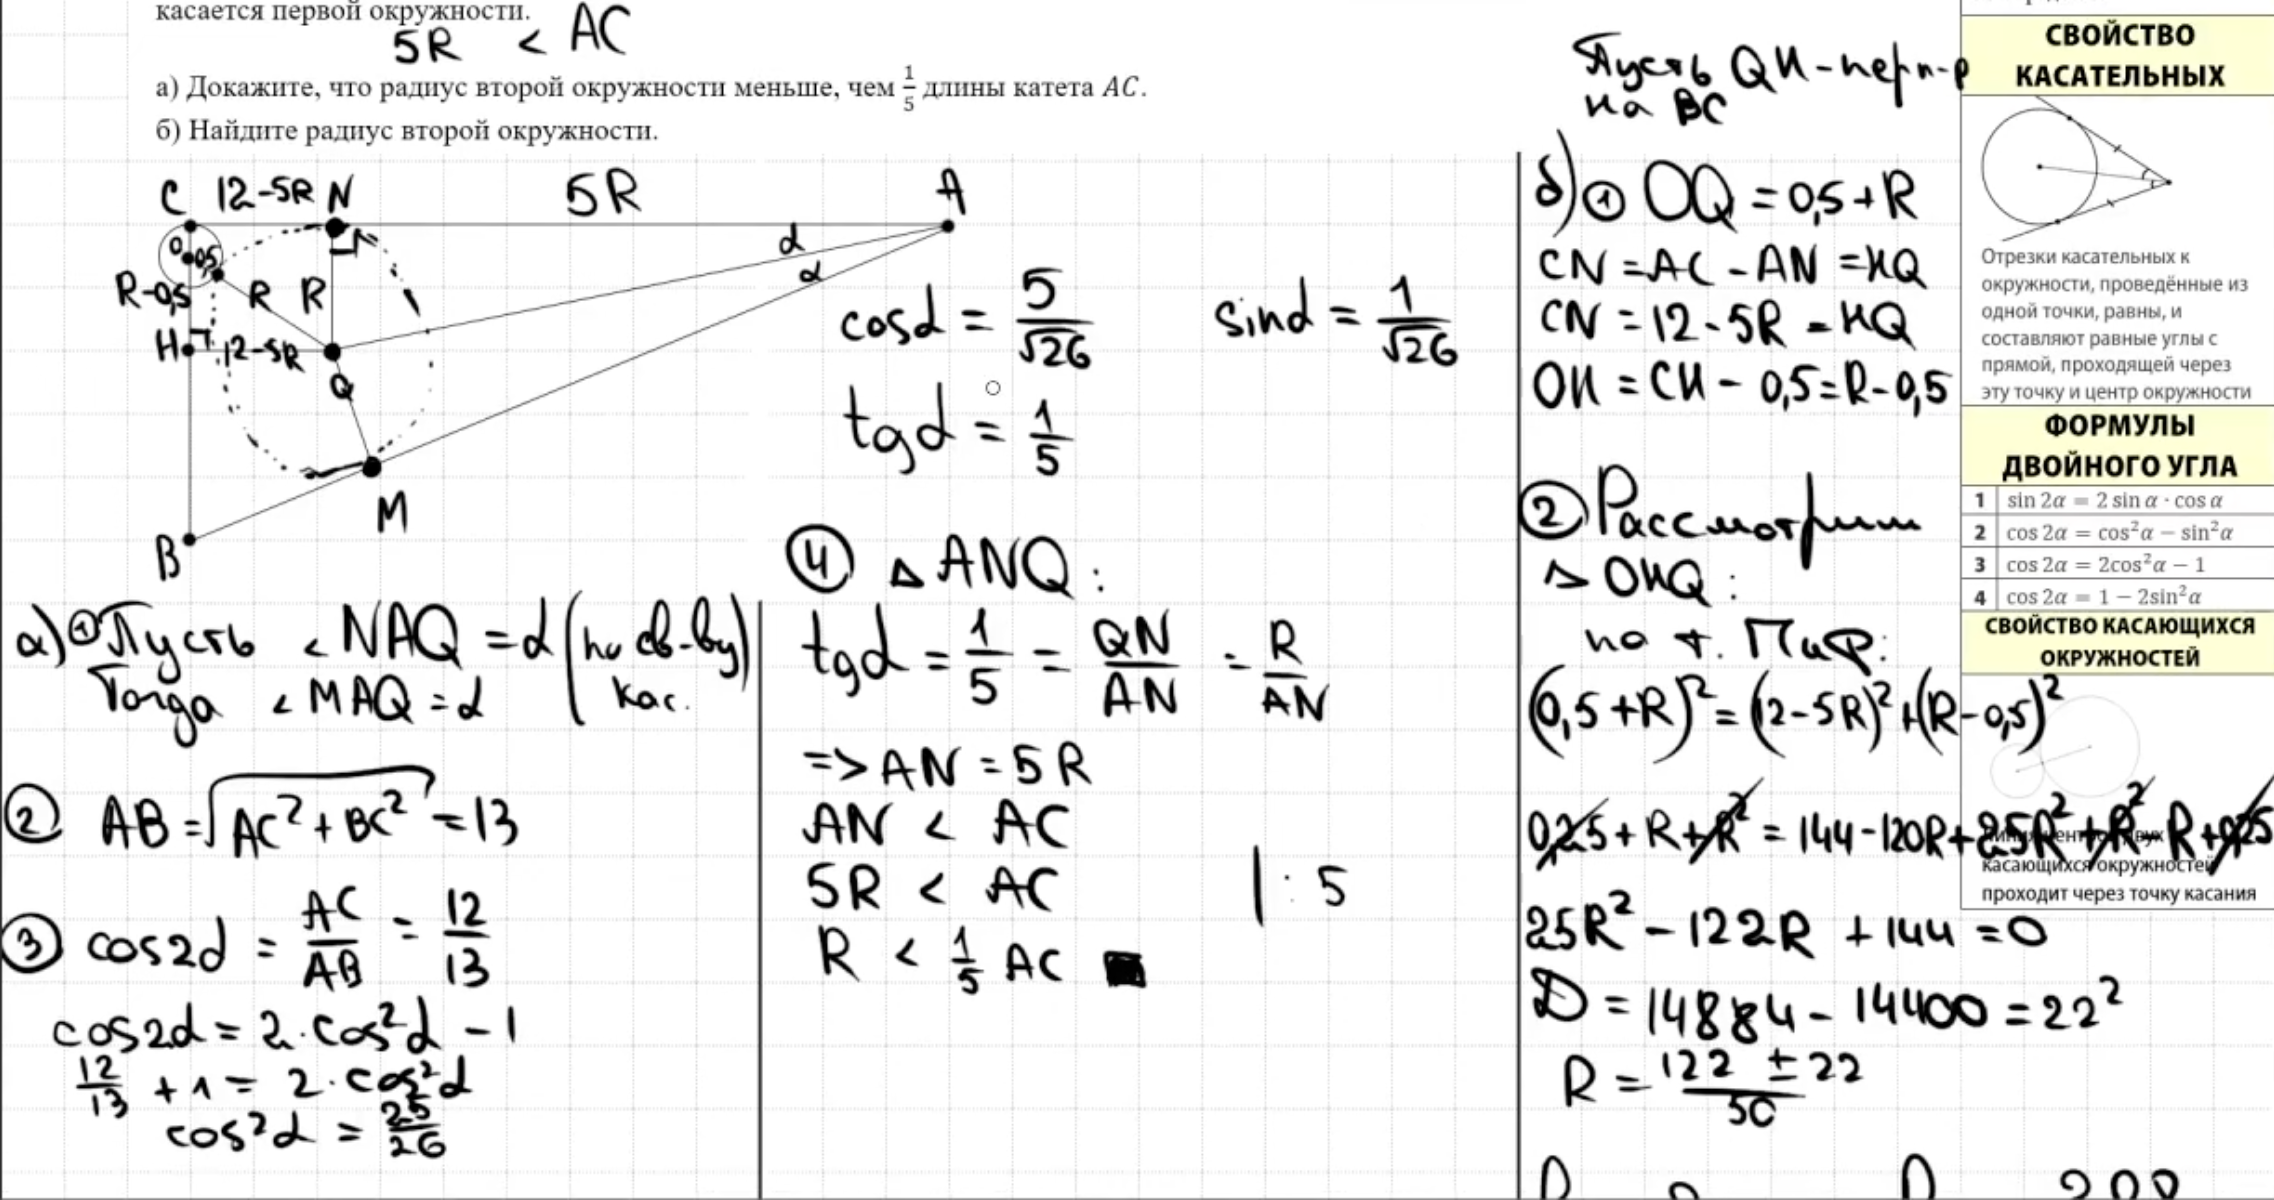 касается первой окружности.
5R < AC
а) Докажите, что радиус второй окружности меньше, чем 1/5 длины катета AC.
б) Найдите радиус второй окружности.
C 12-5R N 5R A
O 0,5
R-0,5 R R
H 12-5R
Q
M
B
α
α
cosα = 5/√26 sinα = 1/√26
tgα = 1/5
а) ① Пусть ∠NAQ = α (по св-ву кас.)
Тогда ∠MAQ = α
② AB = √(AC² + BC²) = 13
③ cos2α = AC/AB = 12/13
cos2α = 2·cos²α - 1
12/13 + 1 = 2·cos²α
cos²α = 25/26
④ △ANQ:
tgα = 1/5 = QN/AN = R/AN
=> AN = 5R
AN < AC
5R < AC | : 5
R < 1/5 AC ■
Пусть QH - перп-р
на BC
б) ① OQ = 0,5 + R
CN = AC - AN = HQ
CN = 12 - 5R = HQ
OH = CH - 0,5 = R - 0,5
② Рассмотрим
△OHQ:
по т. Пиф:
(0,5 + R)² = (12 - 5R)² + (R - 0,5)²
0,25 + R + R² = 144 - 120R + 25R² + R² - R + 0,25
25R² - 122R + 144 = 0
D = 14884 - 14400 = 22²
R = (122 ± 22)/50
СВОЙСТВО
КАСАТЕЛЬНЫХ
Отрезки касательных к
окружности, проведённые из
одной точки, равны, и
составляют равные углы с
прямой, проходящей через
эту точку и центр окружности
ФОРМУЛЫ
ДВОЙНОГО УГЛА
1 sin 2α = 2 sin α · cos α
2 cos 2α = cos²α − sin²α
3 cos 2α = 2cos²α − 1
4 cos 2α = 1 − 2sin²α
СВОЙСТВО КАСАЮЩИХСЯ
ОКРУЖНОСТЕЙ
касающихся окружностей
проходит через точку касания